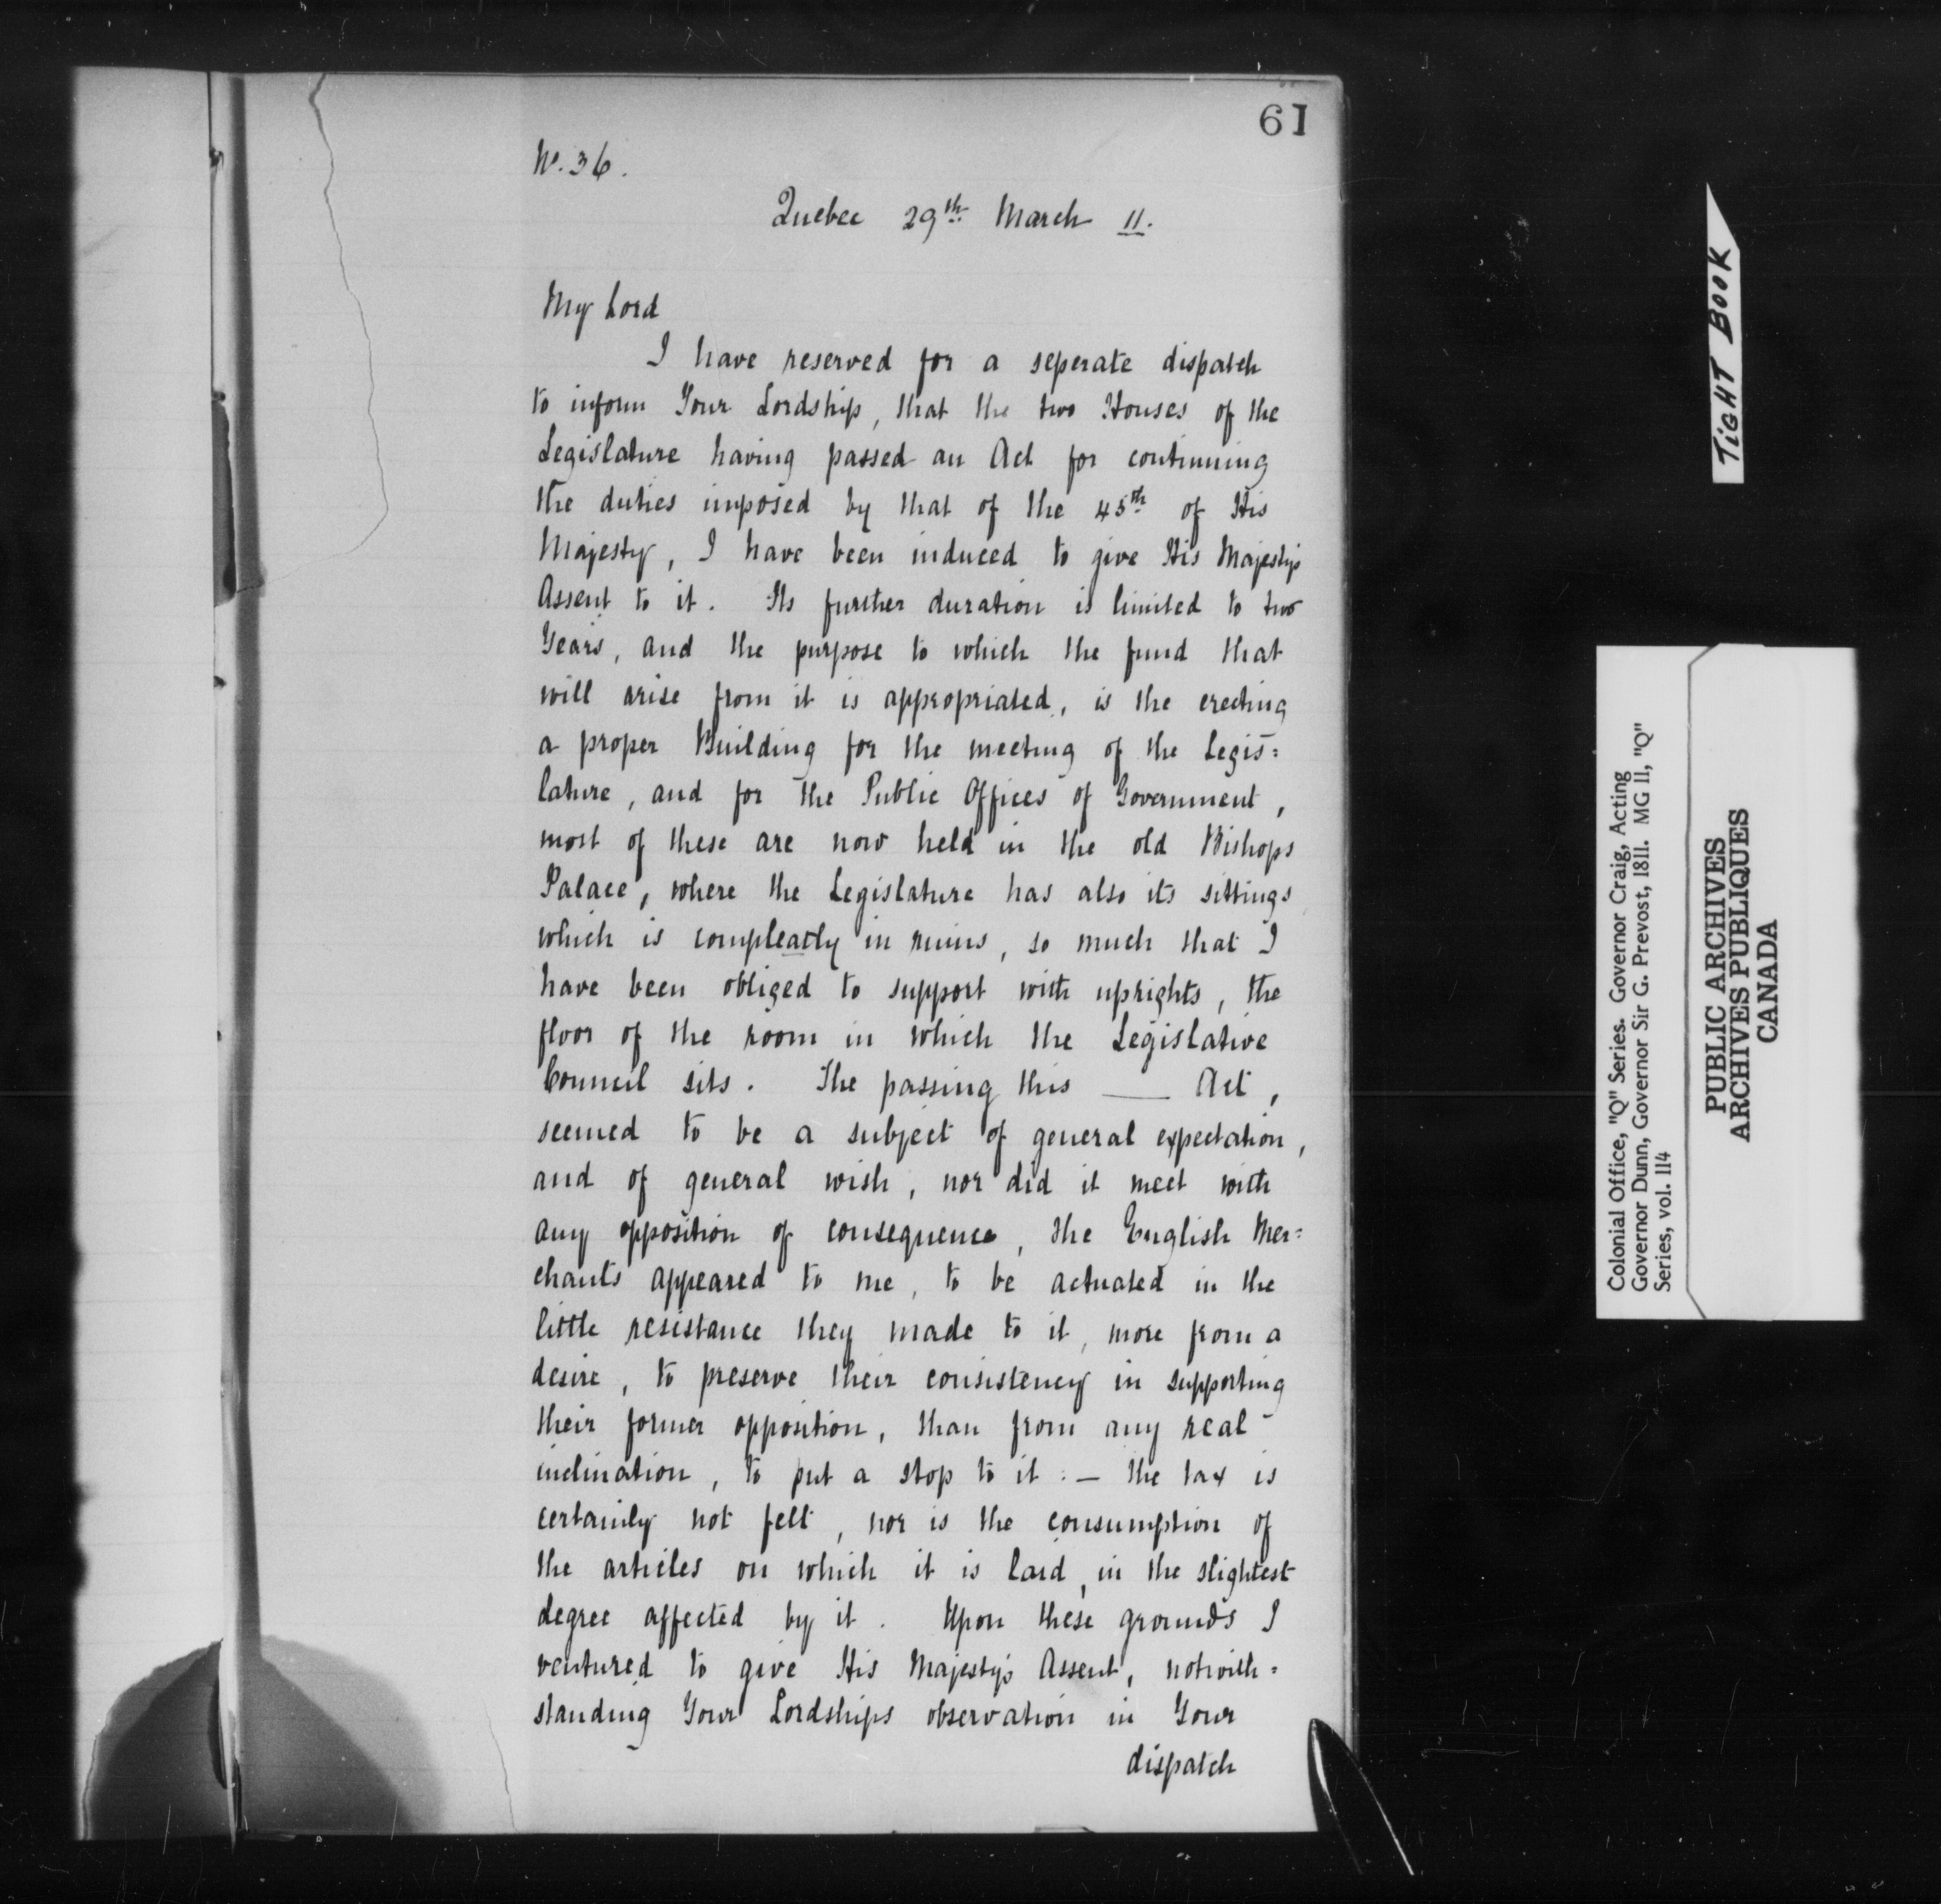 61
No. 36.
Quebec 29th March 11.
My Lord
I have reserved for a seperate dispatch
to inform Your Lordship, that the two Houses of the
Legislature having passed an Act for continuing
the duties imposed by that of the 45th of His
Majesty, I have been induced to give His Majestys
Assent to it. Its further duration is limited to two
Years, and the purpose to which the fund that
will arise from it is appropriated, is the erecting
a proper Building for the meeting of the Legis=
lature, and for the Public Offices of Government,
most of these are now held in the old Bishops
Palace, where the Legislature has also its sittings
which is compleatly in ruins, so much that I
have been obliged to support with uprights, the
floor of the room in which the Legislative
Council sits. The passing this — Act,
seemed to be a subject of general expectation,
and of general wish, nor did it meet with
any opposition of consequence, the English Mer=
chants appeared to me, to be actuated in the
little resistance they made to it, more from a
desire, to preserve their consistency in supporting
their former opposition, than from any real
inclination, to put a stop to it :— the tax is
certainly not felt, nor is the consumption of
the articles on which it is laid, in the slightest
degree affected by it. Upon these grounds I
ventured to give His Majesty's Assent, notwith=
standing Your Lordships observation in Your
dispatch
TIGHT BOOK
Colonial Office, "Q" Series. Governor Craig, Acting
Governor Dunn, Governor Sir G. Prevost, 1811. MG 11, "Q"
Series, vol. 114
PUBLIC ARCHIVES
ARCHIVES PUBLIQUES
CANADA